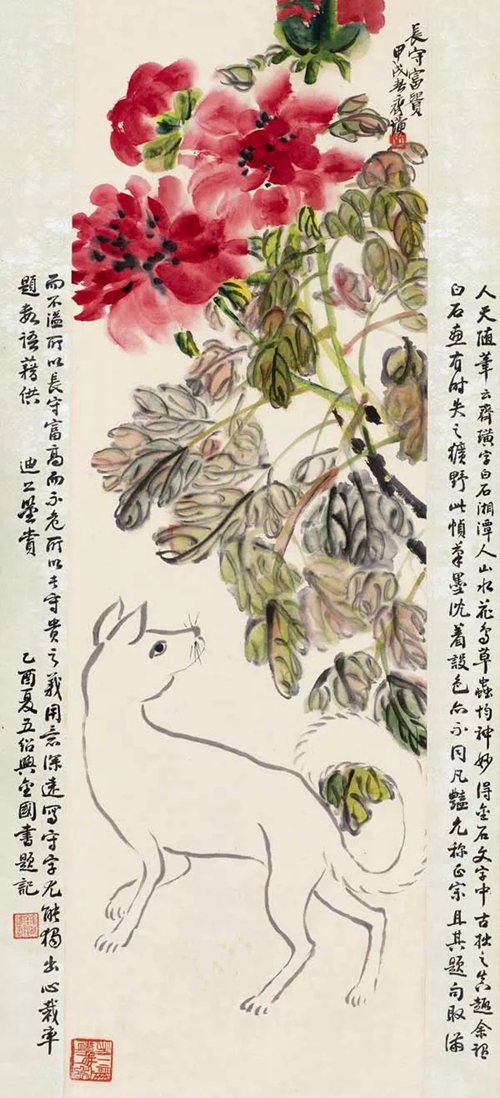 長守富貴
甲戌春齊璜
人天隨筆云齊璜字白石湘潭人山水花鳥草蟲均神妙得金石文字中古拙之真趣余視
白石畫有时失之獷野此幀筆墨沈着設色亦不同凡豔允称正宗且其題句取滿
而不溢所以長守富高而不危所以長守貴之義用意深遠寫守字尤能獨出心裁率
題數語藉供 迪公鑒賞 乙酉夏五紹興金國書題記